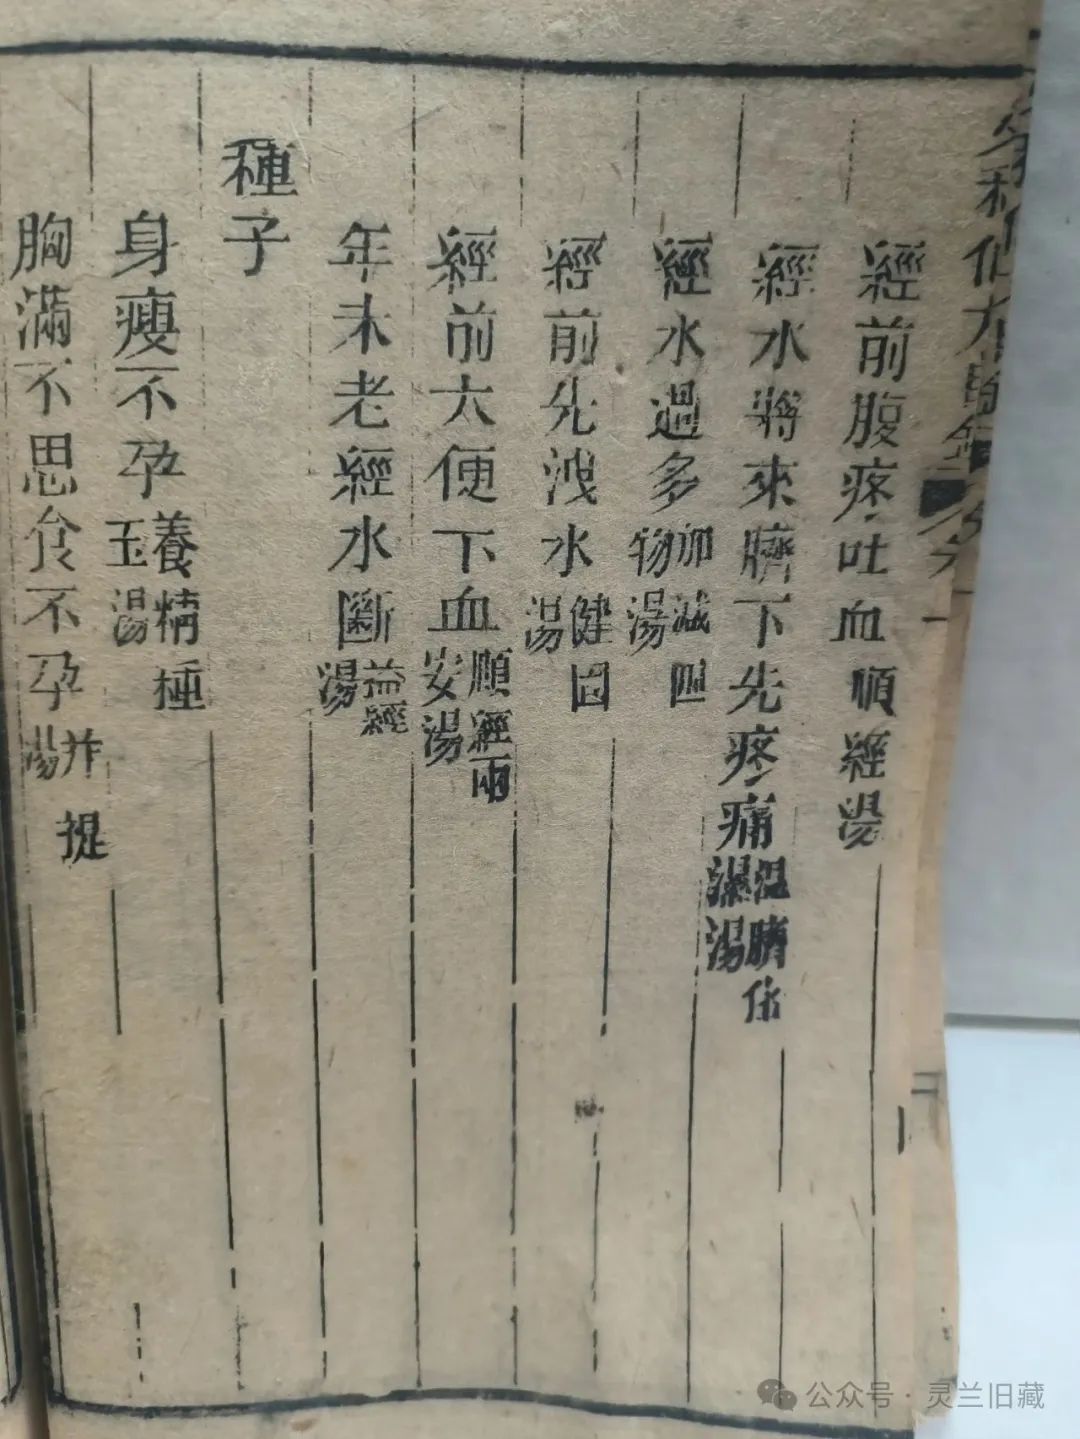 經前腹疼吐血順經湯
經水將來臍下先疼痛温臍化濕湯
經水過多加減四物湯
經前先洩水健固湯
經前大便下血順經兩安湯
年未老經水斷益經湯
種子
身瘦不孕養精種玉湯
胸滿不思食不孕并提湯
公众号·灵兰旧藏